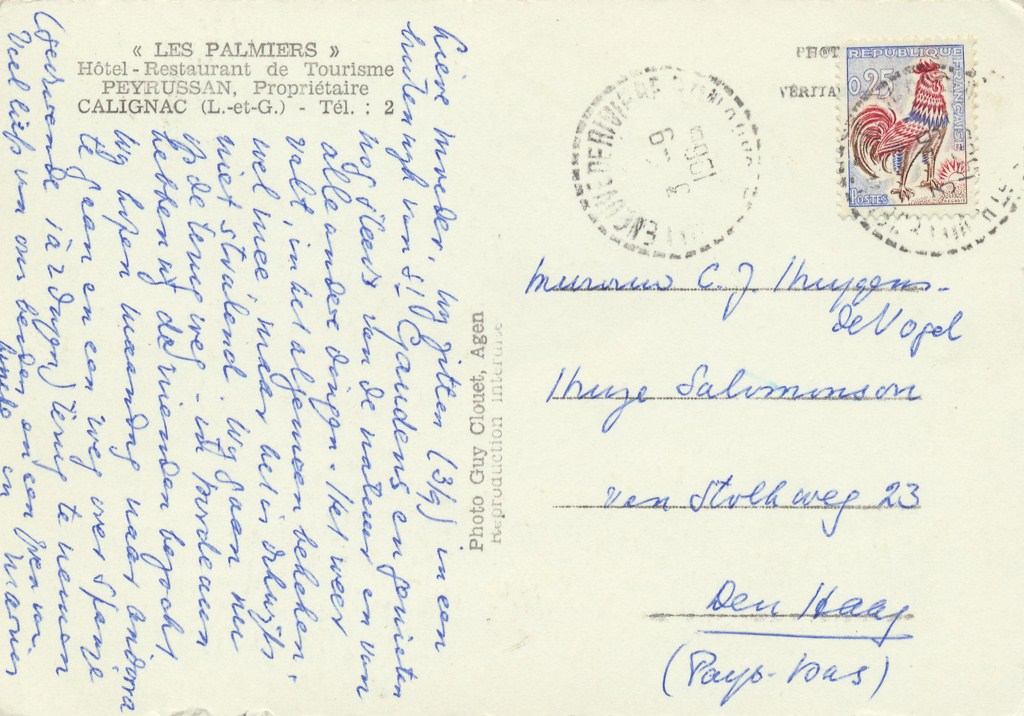 « LES PALMIERS »
Hôtel - Restaurant de Tourisme
PEYRUSSAN, Propriétaire
CALIGNAC (L.-et-G.) - Tél. : 2
Lieve moeder, wij zitten (3/9) in een
buitenwijk van St Gaudens en genieten
nog steeds van de natuur en van
alle andere dingen. Het weer
valt, in het algemeen bekeken,
wel mee, maar het is dikwijls
niet stralend. Wij gaan nu
op de terugweg - in Bordeaux
hebben wij de vrienden bezocht
Wij hopen maandag naar Andorra
te gaan en een weg over Spanje
(gedurende 1 à 2 dagen) terug te nemen
Veel liefs van ons beiden en een zoen van
en
Photo Guy Clouet, Agen
Reproduction Interdite
PHOT
VÉRITA
RÉPUBLIQUE
FRANÇAISE
0,25
POSTES
Mevrouw C. J. Huygens-
de Vogel
Huize Salomonson
van Stolkweg 23
Den Haag
(Pays-Bas)